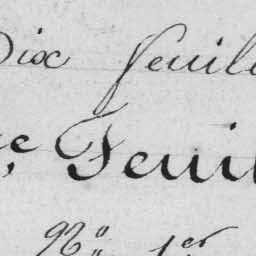 Dix feuill
e, Feuil
N° 1er